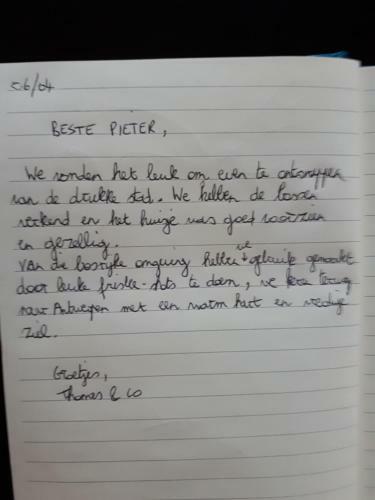 06/04
BESTE PIETER,
We vonden het leuk om even te ontsnappen
van de drukke stad. We hebben de bossen
verkend en het huisje was goed voorzien
en gezellig.
Van de bosrijke omgeving hebben we gebruik gemaakt
door leuke frisbee-shots te doen, we keren terug
naar Antwerpen met een warm hart en vredige
ziel.
Groetjes,
Thomas & co